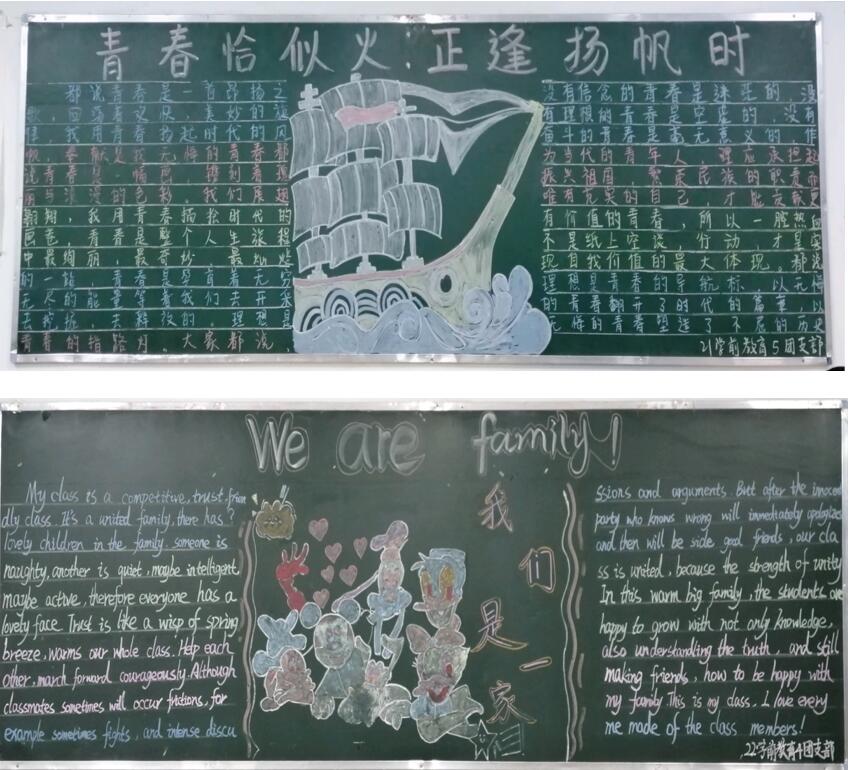 青春恰似火 正逢扬帆时
都说青春是一首昂扬之
歌,回荡着欢快、美妙的旋
律。我用青春扬起时代的风
帆,奉献是我无悔的青春都
说青春是一幅
丽与浪漫的色彩,我们展翅
翱翔,我用青春描绘时代的
画卷,青春是整个人生旅程
中最绚丽、最奇妙、最
的一段,青春是孕育着无穷
无尽的能量等着我们去开采
去 ,去释放的。理想是
青春的指路灯。大家都说,
没有信念的青春是迷茫的,没
有理想的青春是空虚的,没有
奋斗的青春是毫无意义的。作
为当代的青年人,理应承担起
振兴祖国,繁荣民族的职责而
唯有充实的自己,才能贡献更
有价值的青春,所以一腔热血
不是纸上空谈,行动,才是实
现自我价值的最大体现。都说
理想是青春的导航标,以无悔
的青春翻开了时代的篇章,以
无悔的青春塑造了不屈的历史
21学前教育5团支部
We are family!
My class is a competitive, trust, frien
dly class. It's a united family, there has ?
lovely children in the family. someone is
naughty, another is quiet, maybe intelligent,
maybe active, therefore everyone has a
lovely face. Trust is like a wisp of spring
breeze, warms our whole class. Help each
other, march forward courageously. Although
classmates sometimes will occur frictions, for
example sometimes fights, and intense discu
我
们
是
一
家
ssions and arguments. But after the innocent
party who knows wrong will immediately apologize
and then will be side good friends, our cla
ss is united, because the strength of unity
In this warm big family, the students are
happy to grow with not only knowledge,
also understanding the truth, and still
making friends, how to be happy with
my family. This is my class. I love every
me made of the class members!
22学前教育4团支部